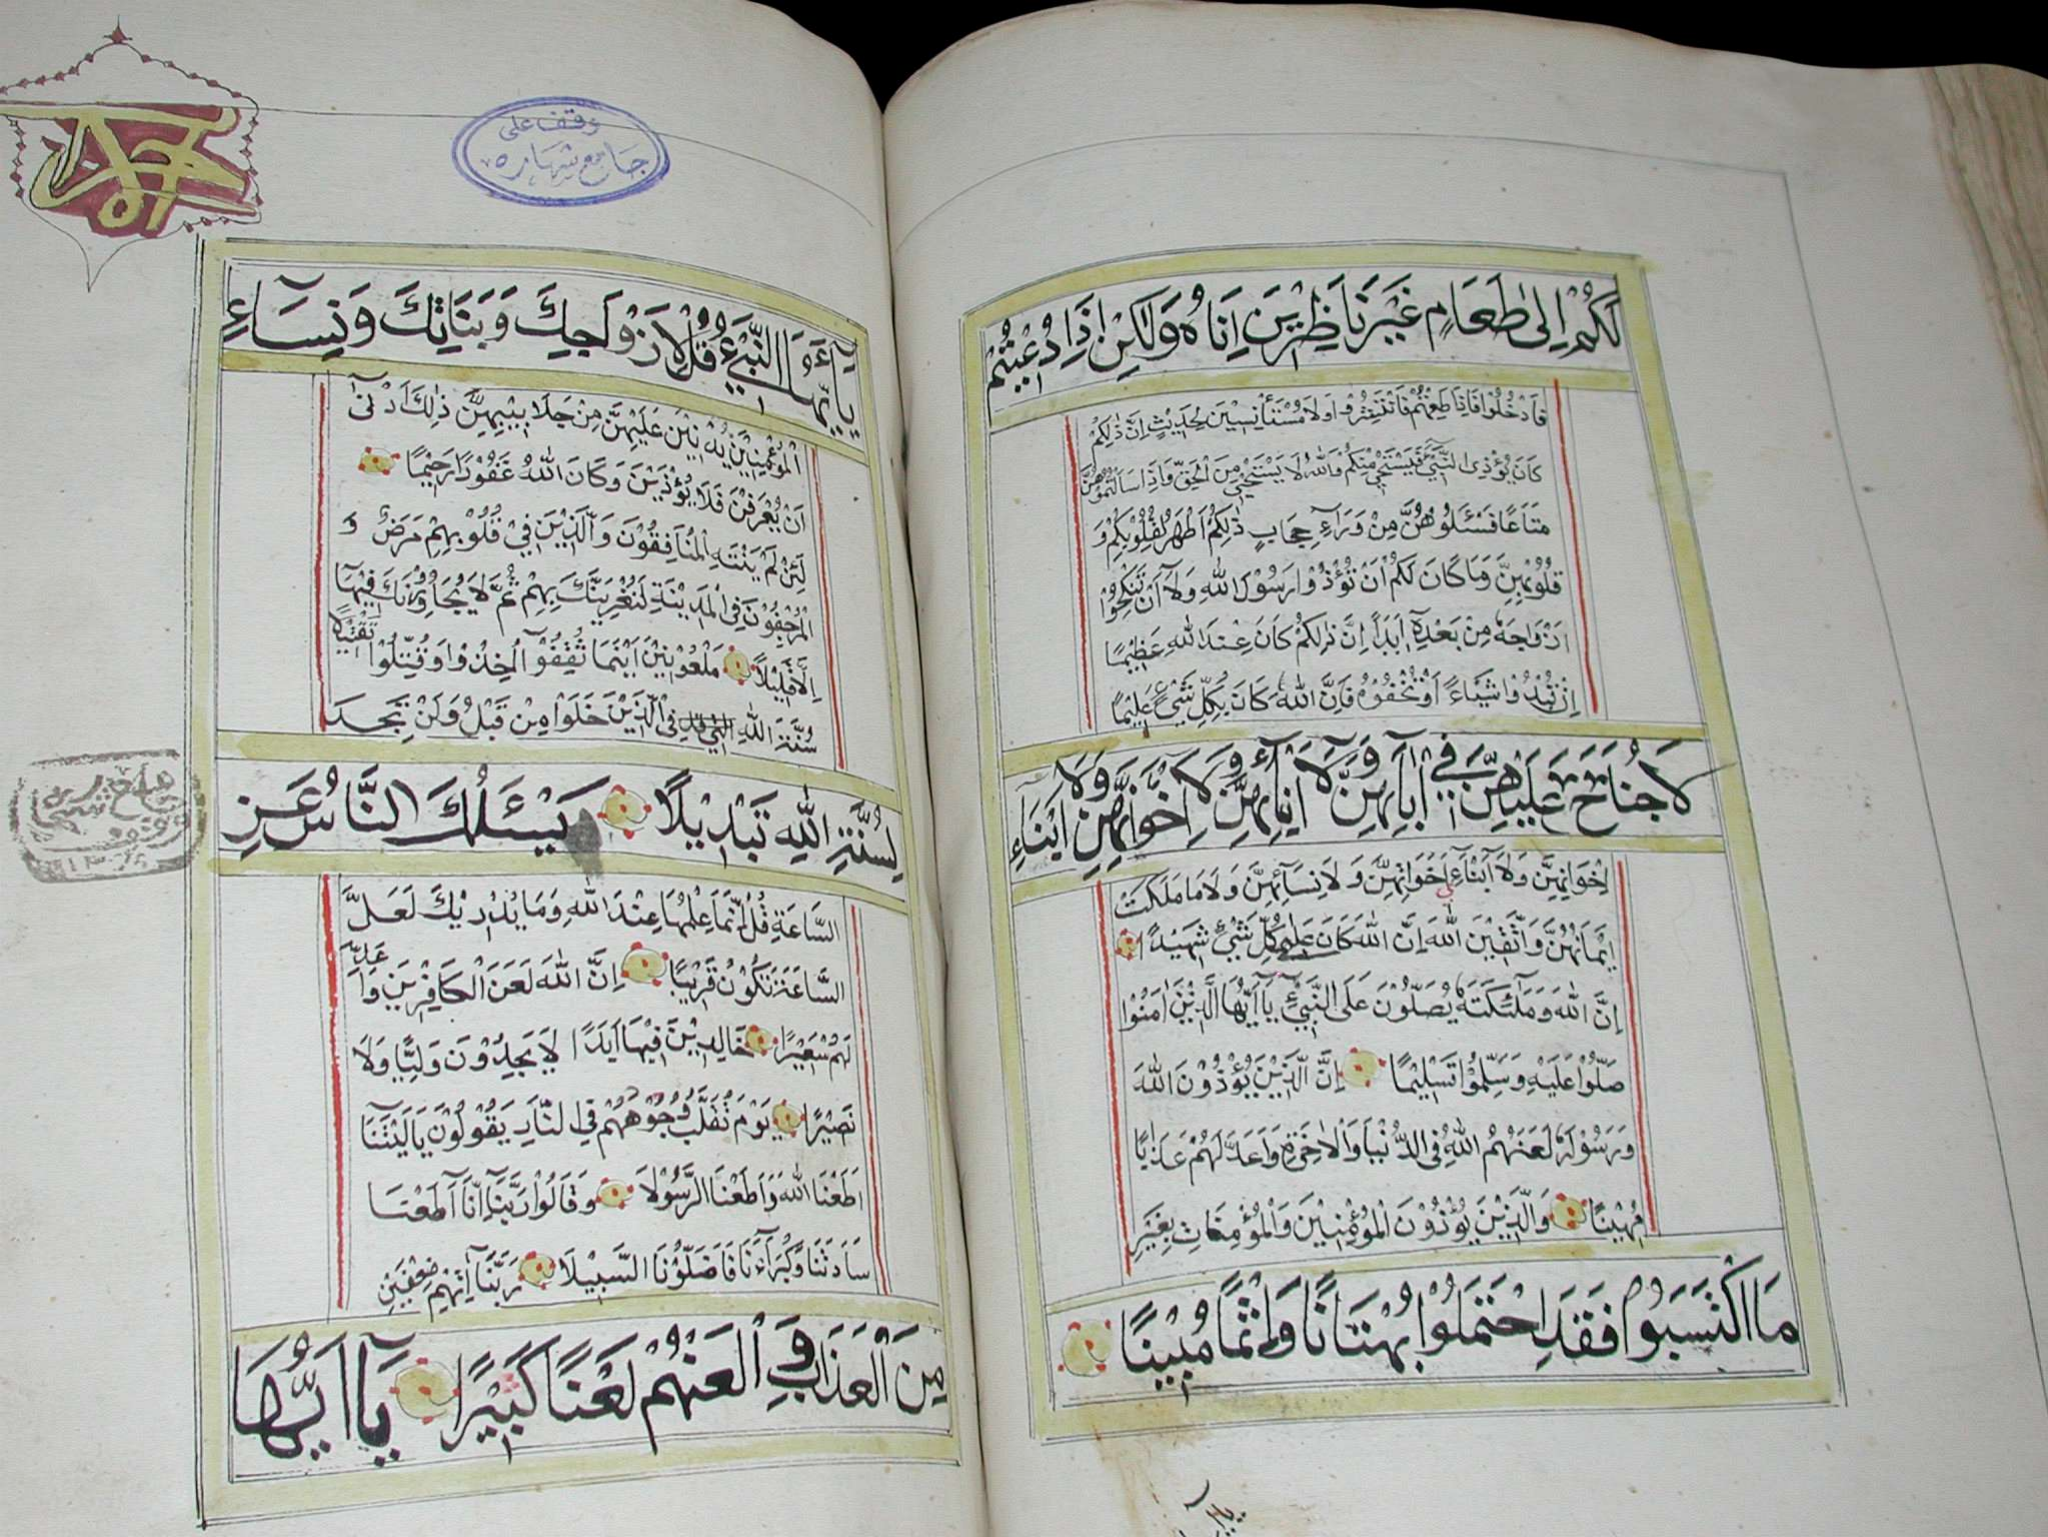 لَكُمْ اِلىٰ طَعَامٍ غَيْرَ نَاظِرِيْنَ اِنَاهُ وَلٰكِنْ اِذَا دُعِيْتُمْ
فَادْخُلُوْا فَاِذَا طَعِمْتُمْ فَانْتَشِرُوْا وَلَا مُسْتَأْنِسِيْنَ لِحَدِيْثٍ اِنَّ ذٰلِكُمْ
كَانَ يُؤْذِى النَّبِيَّ فَيَسْتَحْيِيْ مِنْكُمْ وَاللهُ لَا يَسْتَحْيِيْ مِنَ الْحَقِّ وَاِذَا سَاَلْتُمُوْهُنَّ
مَتَاعًا فَسْئَلُوْهُنَّ مِنْ وَرَآءِ حِجَابٍ ذٰلِكُمْ اَطْهَرُ لِقُلُوْبِكُمْ وَ
قُلُوْبِهِنَّ وَمَا كَانَ لَكُمْ اَنْ تُؤْذُوْا رَسُوْلَ اللهِ وَلَآ اَنْ تَنْكِحُوْا
اَزْوَاجَهُ مِنْ بَعْدِهِٓ اَبَدًا اِنَّ ذٰلِكُمْ كَانَ عِنْدَ اللهِ عَظِيْمًا
اِنْ تُبْدُوْا شَيْاءً اَوْ تُخْفُوْهُ فَاِنَّ اللهَ كَانَ بِكُلِّ شَيْءٍ عَلِيْمًا
لَا جُنَاحَ عَلَيْهِنَّ فِيْٓ اٰبَآئِهِنَّ وَلَآ اَبْنَآئِهِنَّ وَلَآ اِخْوَانِهِنَّ وَلَآ اَبْنَاءِ
اِخْوَانِهِنَّ وَلَآ اَبْنَآءِ اَخَوَاتِهِنَّ وَلَا نِسَآئِهِنَّ وَلَا مَا مَلَكَتْ
اَيْمَانُهُنَّ وَاتَّقِيْنَ اللهَ اِنَّ اللهَ كَانَ عَلىٰ كُلِّ شَيْءٍ شَهِيْدًا
اِنَّ اللهَ وَمَلٰٓئِكَتَهُ يُصَلُّوْنَ عَلَى النَّبِيِّ يَآ اَيُّهَا الَّذِيْنَ اٰمَنُوْا
صَلُّوْا عَلَيْهِ وَسَلِّمُوْا تَسْلِيْمًا اِنَّ الَّذِيْنَ يُؤْذُوْنَ اللهَ
وَرَسُوْلَهُ لَعَنَهُمُ اللهُ فِى الدُّنْيَا وَالْاٰخِرَةِ وَاَعَدَّ لَهُمْ عَذَابًا
مُهِيْنًا وَالَّذِيْنَ يُؤْذُوْنَ الْمُؤْمِنِيْنَ وَالْمُؤْمِنَاتِ بِغَيْرِ
مَا اكْتَسَبُوْا فَقَدِ احْتَمَلُوْا بُهْتَانًا وَاِثْمًا مُبِيْنًا
وقف على
جامع شهاره
يَآ اَيُّهَا النَّبِيُّ قُلْ لِاَزْوَاجِكَ وَبَنَاتِكَ وَنِسَآءِ
الْمُؤْمِنِيْنَ يُدْنِيْنَ عَلَيْهِنَّ مِنْ جَلَابِيْبِهِنَّ ذٰلِكَ اَدْنىٰٓ
اَنْ يُعْرَفْنَ فَلَا يُؤْذَيْنَ وَكَانَ اللهُ غَفُوْرًا رَحِيْمًا
لَئِنْ لَمْ يَنْتَهِ الْمُنَافِقُوْنَ وَالَّذِيْنَ فِيْ قُلُوْبِهِمْ مَرَضٌ وَ
الْمُرْجِفُوْنَ فِى الْمَدِيْنَةِ لَنُغْرِيَنَّكَ بِهِمْ ثُمَّ لَا يُجَاوِرُوْنَكَ فِيْهَآ
اِلَّا قَلِيْلًا مَلْعُوْنِيْنَ اَيْنَمَا ثُقِفُوْٓا اُخِذُوْا وَقُتِّلُوْا تَقْتِيْلًا
سُنَّةَ اللهِ فِى الَّذِيْنَ خَلَوْا مِنْ قَبْلُ وَلَنْ تَجِدَ
لِسُنَّةِ اللهِ تَبْدِيْلًا يَسْئَلُكَ النَّاسُ عَنِ
السَّاعَةِ قُلْ اِنَّمَا عِلْمُهَا عِنْدَ اللهِ وَمَا يُدْرِيْكَ لَعَلَّ
السَّاعَةَ تَكُوْنُ قَرِيْبًا اِنَّ اللهَ لَعَنَ الْكَافِرِيْنَ وَاَعَدَّ
لَهُمْ سَعِيْرًا خَالِدِيْنَ فِيْهَآ اَبَدًا لَا يَجِدُوْنَ وَلِيًّا وَلَا
نَصِيْرًا يَوْمَ تُقَلَّبُ وُجُوْهُهُمْ فِى النَّارِ يَقُوْلُوْنَ يَالَيْتَنَآ
اَطَعْنَا اللهَ وَاَطَعْنَا الرَّسُوْلَا وَقَالُوْا رَبَّنَآ اِنَّآ اَطَعْنَا
سَادَتَنَا وَكُبَرَآءَنَا فَاَضَلُّوْنَا السَّبِيْلَا رَبَّنَآ اٰتِهِمْ ضِعْفَيْنِ
مِنَ الْعَذَابِ وَالْعَنْهُمْ لَعْنًا كَبِيْرًا يَآ اَيُّهَا